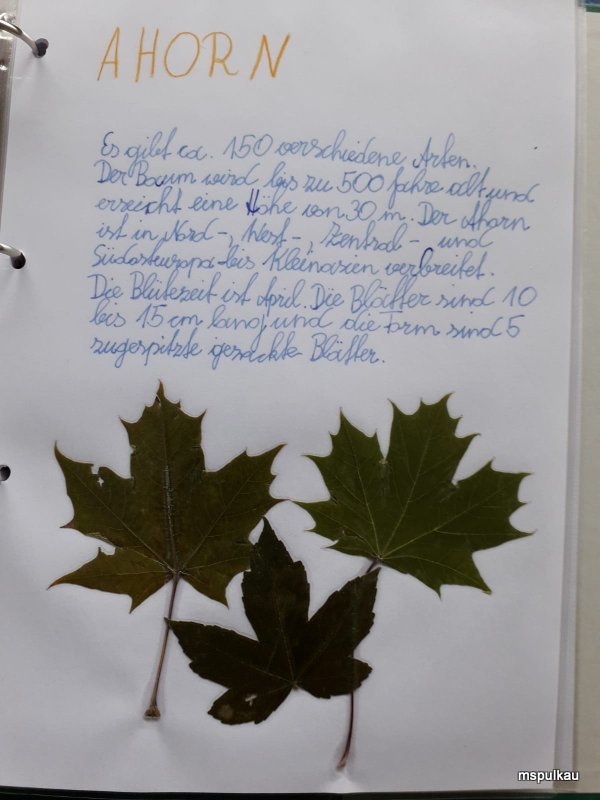 AHORN
Es gibt ca. 150 verschiedene Arten.
Der Baum wird bis zu 500 Jahre alt und
erreicht eine Höhe von 30 m. Der Ahorn
ist in Nord-, West-, Zentral- und
Südosteuropa bis Kleinasien verbreitet.
Die Blütezeit ist April. Die Blätter sind 10
bis 15 cm lang und die Form sind 5
zugespitzte gezackte Blätter.
mspulkau